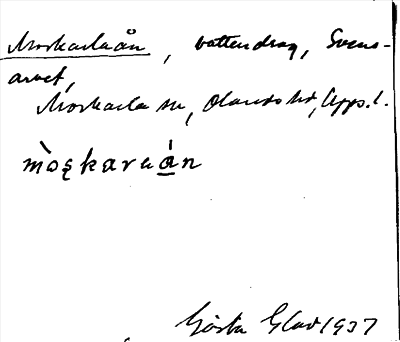 Morkarlaån, vattendrag, Svens-
arvet,
Morkarla sn, Olands hd, Upps. l.
mòꞩkaraán
Gösta Glad 1937